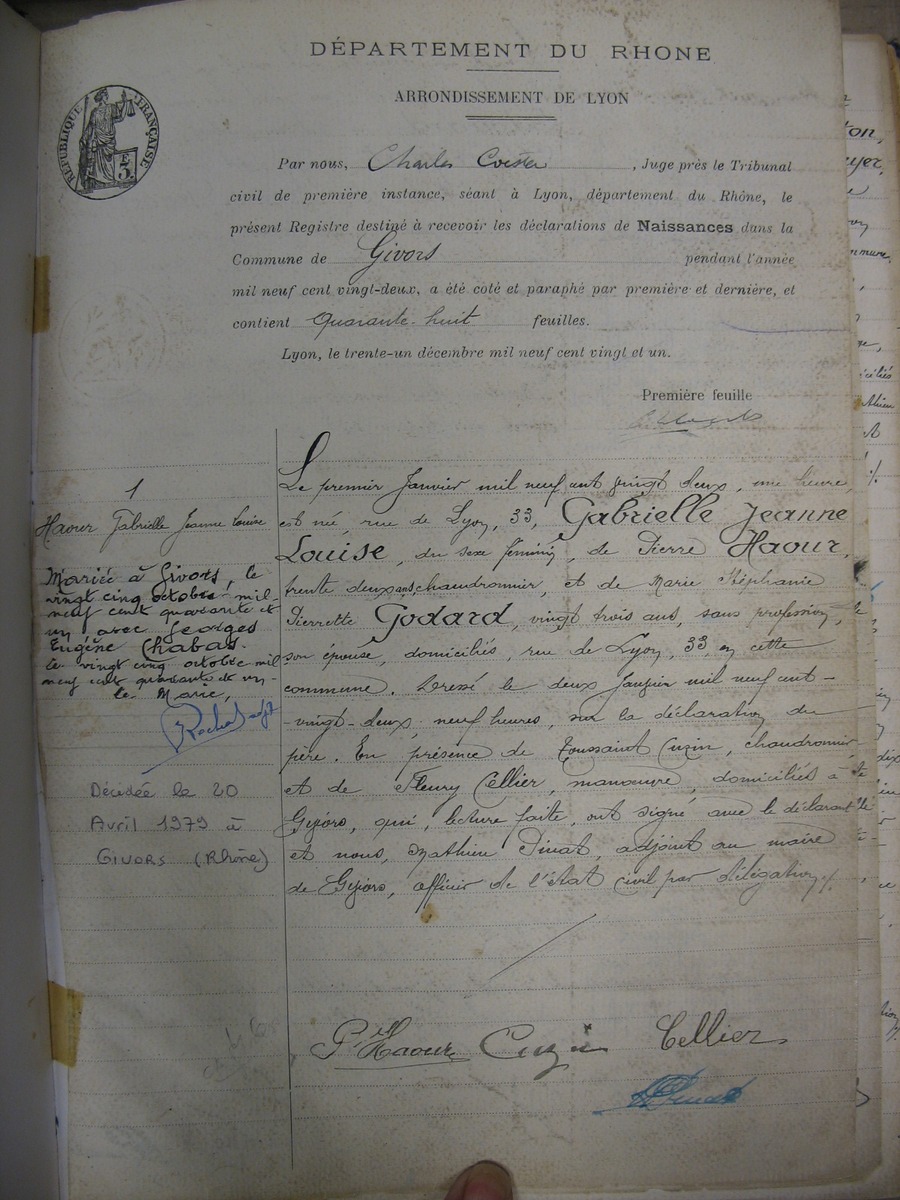 DÉPARTEMENT DU RHONE
ARRONDISSEMENT DE LYON
RÉPUBLIQUE FRANÇAISE
Par nous, Charles , Juge près le Tribunal
civil de première instance, séant à Lyon, département du Rhône, le
présent Registre destiné à recevoir les déclarations de Naissances dans la
Commune de Givors pendant l'année
mil neuf cent vingt-deux, a été coté et paraphé par première et dernière, et
contient Quarante-huit feuilles.
Lyon, le trente-un décembre mil neuf cent vingt et un.
Première feuille
1
Haour Gabrielle Jeanne Louise
Mariée à Givors, le
vingt cinq octobre mil
neuf cent quarante et
un avec Georges
Eugène Chabas.
le vingt cinq octobre mil
neuf cent quarante et un
le Maire,
Décédée le 20
Avril 1979 à
GIVORS (Rhône)
Le premier Janvier mil neuf cent vingt deux, une heure,
est née, rue de Lyon, 33, Gabrielle Jeanne
Louise, du sexe féminin, de Pierre Haour,
trente deux ans chaudronnier, et de Marie Stéphanie
Pierrette Godard, vingt trois ans, sans profession,
son épouse, domiciliés, rue de Lyon, 33, en cette
commune. Dressé le deux Janvier mil neuf cent-
-vingt-deux, neuf heures, sur la déclaration du
père. En présence de Toussaint Cuzin, chaudronnier
et de Fleury Cellier, manœuvre, domiciliés à
Givors, qui, lecture faite, ont signé avec le déclarant
et nous, Mathieu Pinat, adjoint au maire
de Givors, officier de l'état civil par délégation ./.
P. Haour Cuzin Cellier